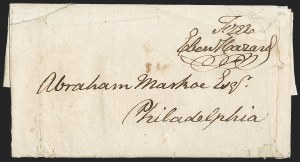 Free
Eben Hazard
Abraham Markoe Esqr.
Philadelphia